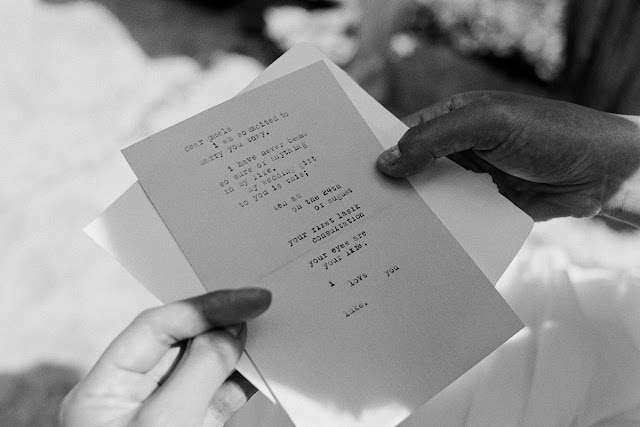 dear poels
i am so excited to
marry you today.
i have never been
so sure of anything
in my life.
my wedding gift
to you is this;
ten am
on the 24th
of august
your first lasik
consultation
your eyes are
your life.
i love you
luke.